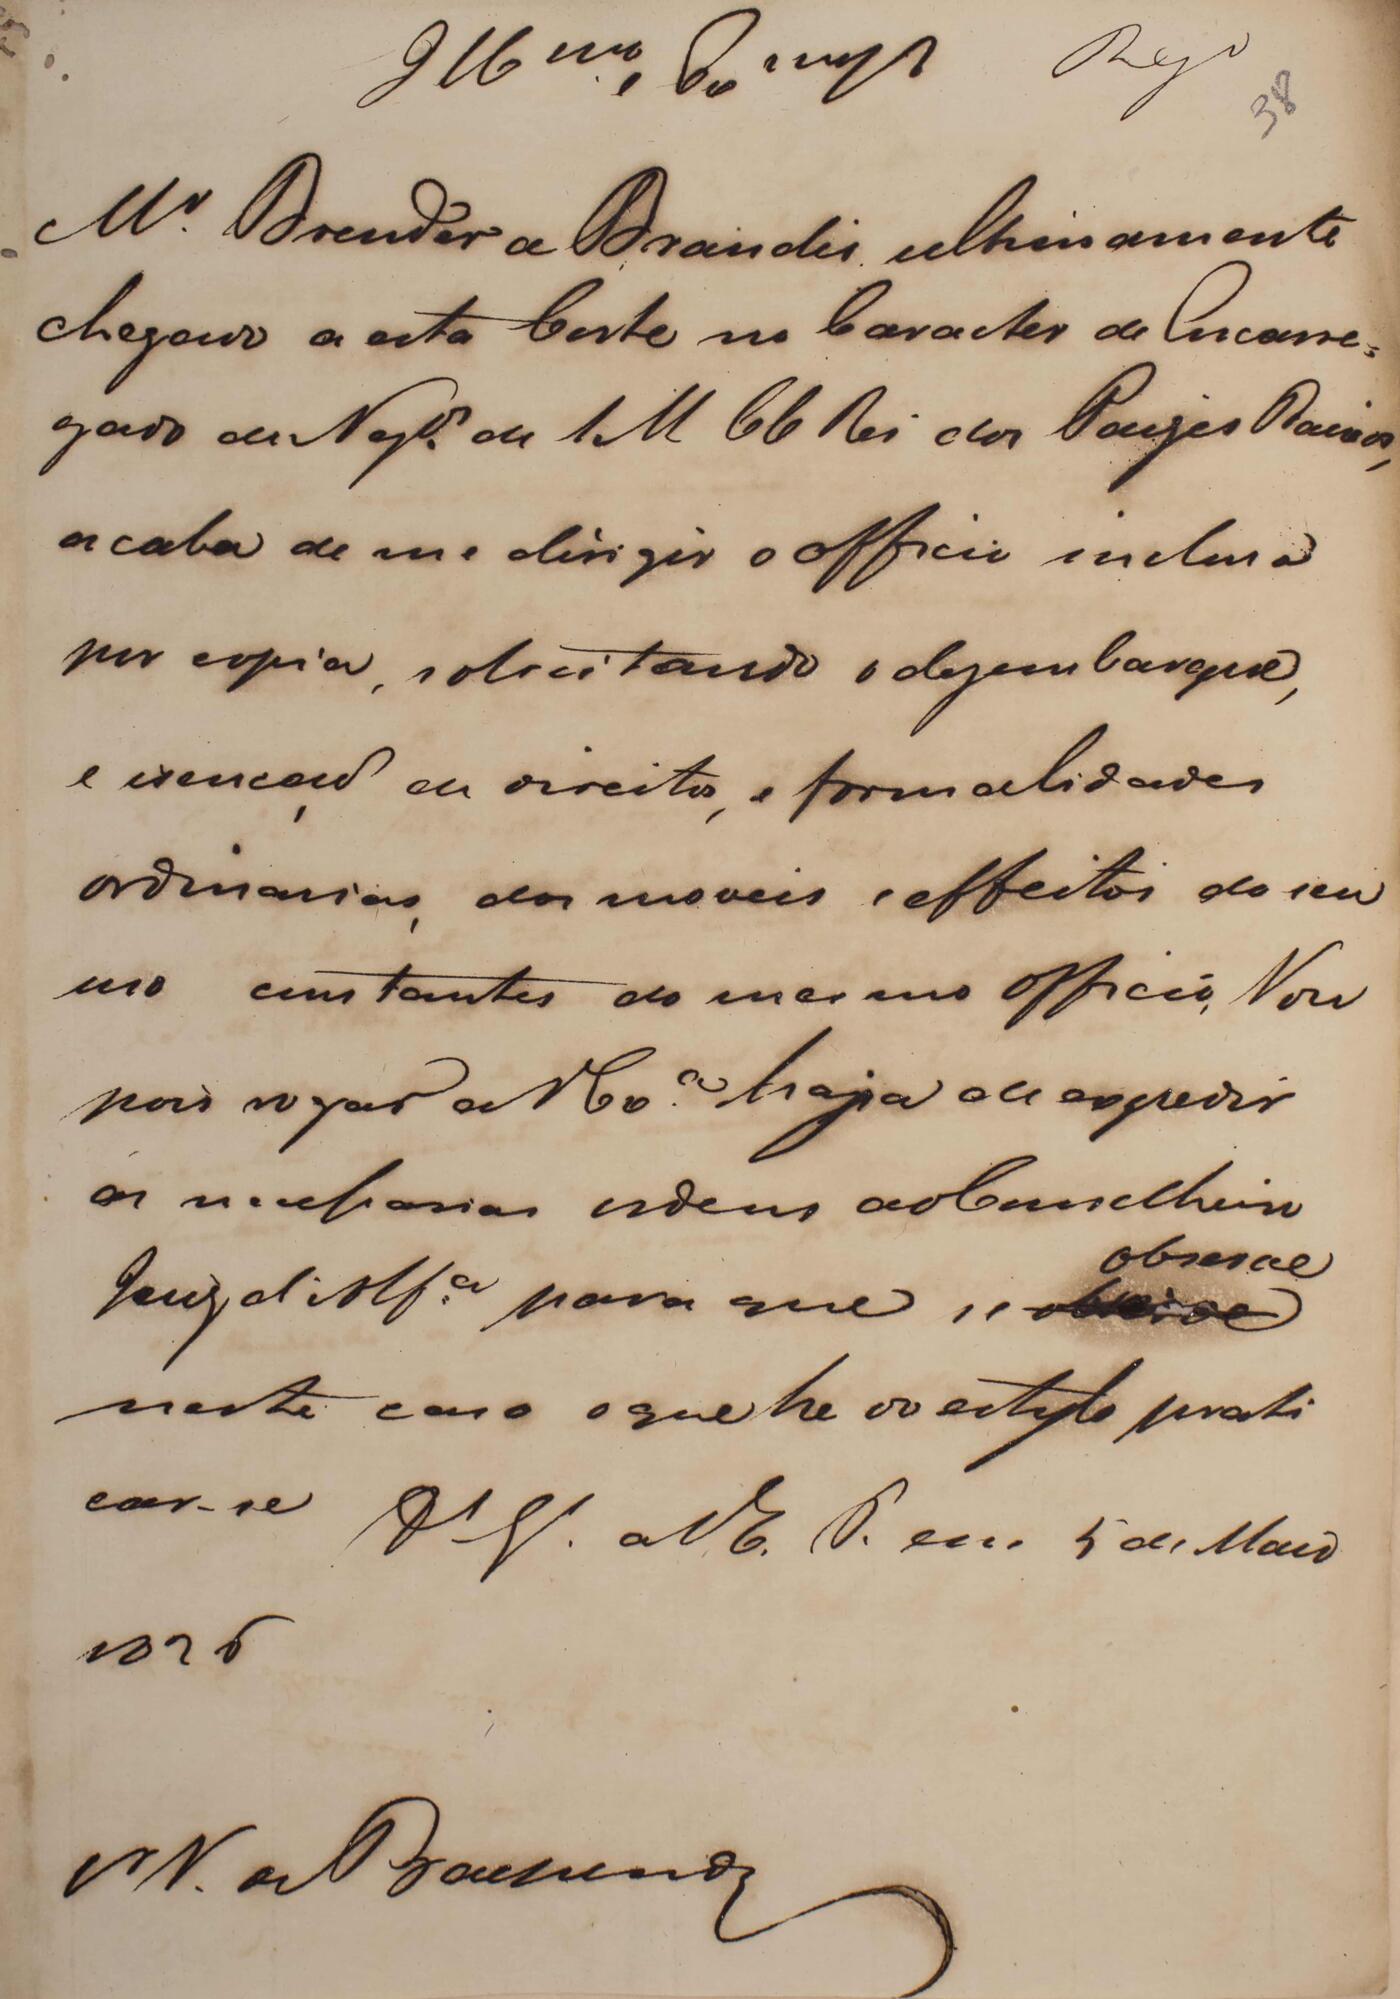 Illmo, e Exmo Snr
Rego
38
Mr. Brender a Brandis ultimamente
chegado a esta Corte no Caracter de Encarre=
gado de Negos. de S M El Rei dos Paizes Baixos,
acaba de me dirigir o officio incluso
por copia, solicitando o dezembarque,
e izençaõ de direitos, e formalidades
ordinarias, dos moveis e effeitos do seu
uso constantes do mesmo officio, Vou
pois rogar a V Exa. haja de expedir
as necessarias ordens ao Conselheiro
Juiz d'Alfa. para que se observe
observe
neste caso o que he do estylo prati
car-se Ds Ge. a V E. P. em 5 de Maio
1826